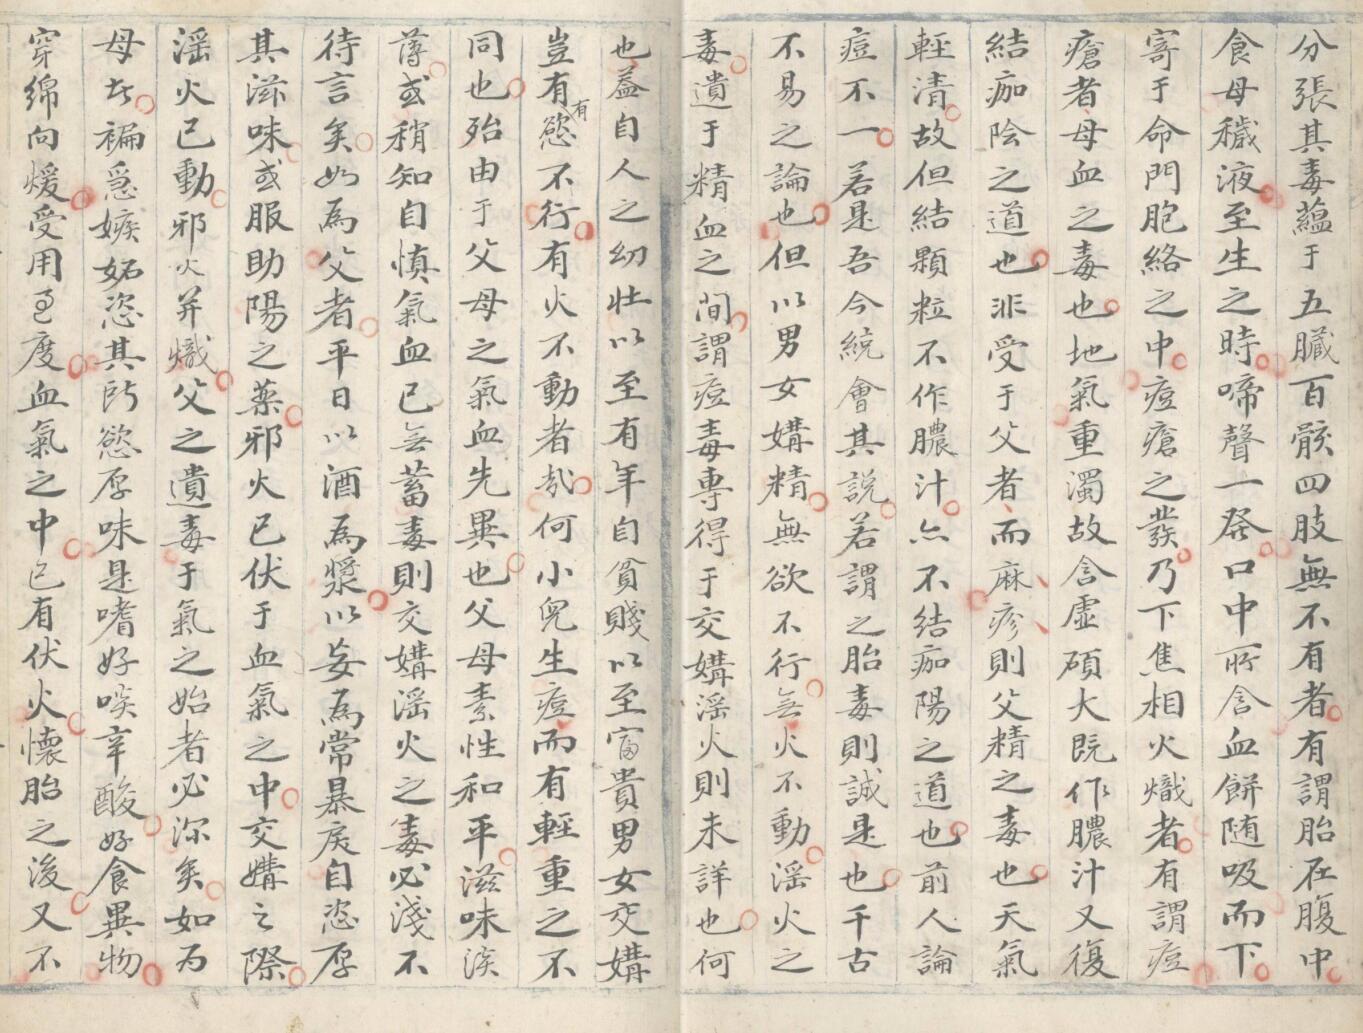 分張其毒蘊于五臟百骸四肢無不有者有謂胎在腹中
食母穢液至生之時啼聲一發口中所含血餅随吸而下
寄于命門胞絡之中痘瘡之發乃下焦相火熾者有謂痘
瘡者母血之毒也地氣重濁故含虛碩大既作膿汁又復
結痂陰之道也非受于父者而麻疹則父精之毒也天氣
輕清故但結顆粒不作膿汁亦不結痂陽之道也前人論
痘不一若是吾今統會其說若謂之胎毒則誠是也千古
不易之論也但以男女媾精無欲不行無火不動淫火之
毒遺于精血之間謂痘毒專得于交媾淫火則未詳也何
也蓋自人之幼壯以至有年自貧賤以至富貴男女交媾
豈有慾有不行有火不動者哉何小兒生痘而有輕重之不
同也殆由于父母之氣血先異也父母素性和平滋味淡
薄或稍知自慎氣血已無蓄毒則交媾淫火之毒必淺不
待言矣如為父者平日以酒為漿以妄為常暴戾自恣厚
其滋味或服助陽之藥邪火已伏于血氣之中交媾之際
淫火已動邪火并熾父之遺毒于氣之始者必深矣如為
母者褊急嫉妬恣其所慾厚味是嗜好啖辛酸好食異物
穿綿向煖受用過度血氣之中已有伏火懷胎之後又不